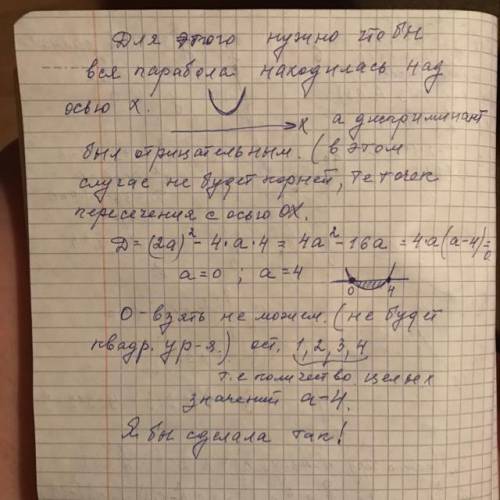 Для этого нужно что бы
вся парабола находилась над
осью х.
х а дискриминант
был отрицательным. (в этом
случае не будет корней, те точек
пересечения с осью ОХ.
D=(2a)²-4·a·4=4a²-16a=4·a(a-4)=0
a=0 ; a=4
0 4
0-взять не можем. (не будет
квадр. ур-я.) ост. 1,2,3,4
т.е количество целых
значений a-4.
Я бы сделала так!